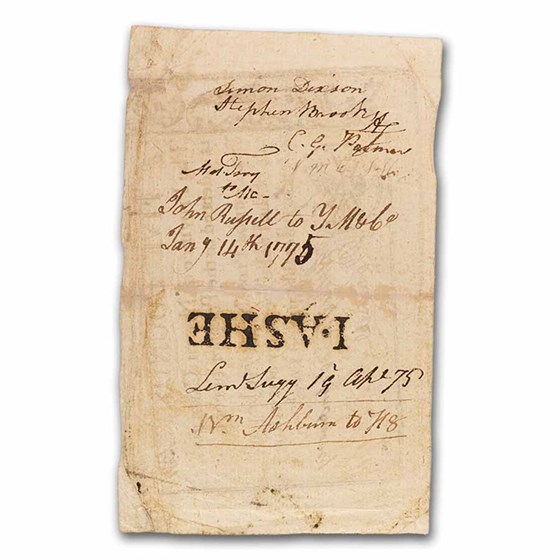 Simon Dixson
Stephen Brook
C. G. Palmer
John Russell to
Jany 14th 1775
I·ASHE
Lemd Sugg 19 Apl 75
Wm Ashburn to H8